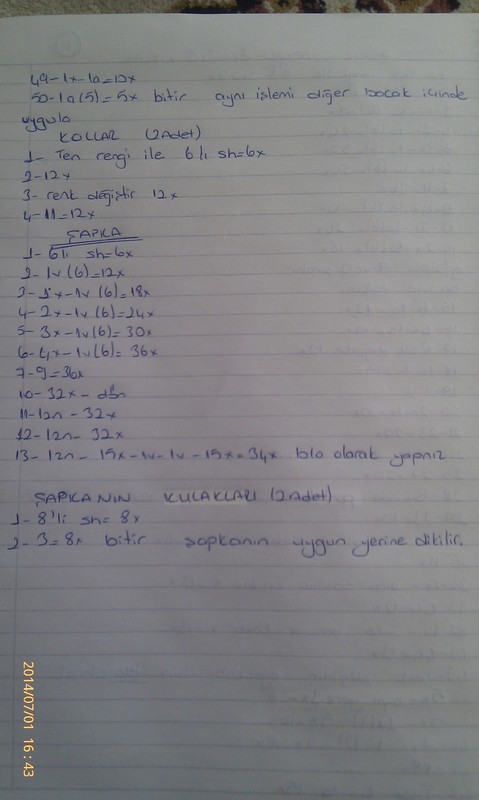 49-1x-1a=12x
50-1a(5)=5x bitir aynı işlemi diğer bacak içinde
uygula
KOLLAR (2Adet)
1- Ten rengi ile 6lı sh=6x
2-12x
3- renk değiştir 12x
4-11=12x
ŞAPKA
1-6lı sh=6x
2-1v(6)=12x
3-1x-1v(6)=18x
4-2x-1v(6)=24x
5-3x-1v(6)=30x
6-4x-1v(6)=36x
7-9=36x
10-32x-dön
11-12n-32x
12-12n-32x
13-12n-15x-1v-1v-15x=34x blo olarak yapınız
ŞAPKANIN KULAKLARI (2Adet)
1-8'li sh=8x
2-3=8x bitir şapkanın uygun yerine dikilir.
2014/07/01 16:43